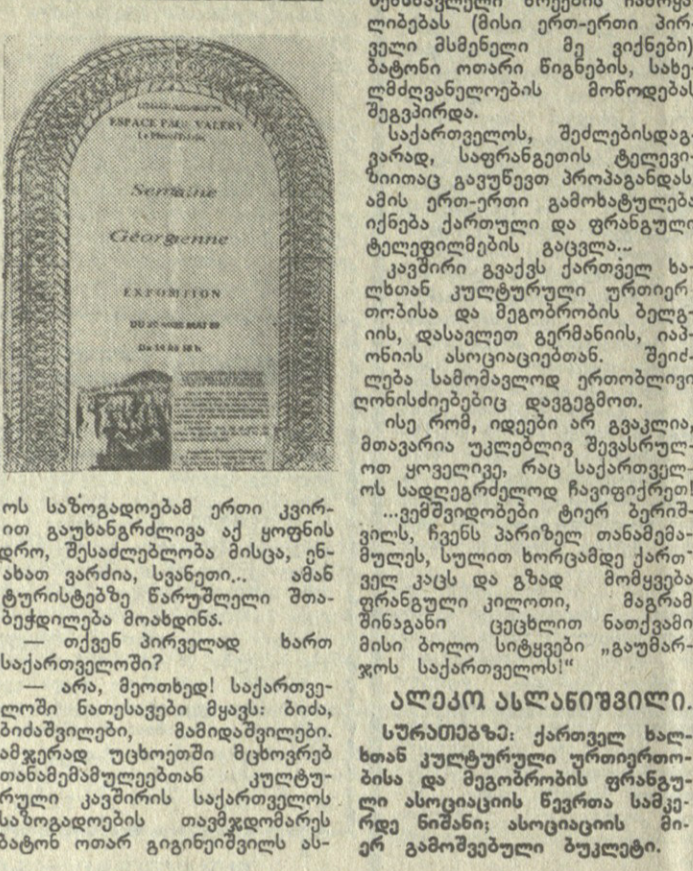 ESPACE PAUL VALERY
Semaine
Géorgienne
EXPOSITION
ოს საზოგადოებამ ერთი კვირ-
ით გაუხანგრძლივა აქ ყოფნის
დრო, შესაძლებლობა მისცა, ენ-
ახათ ვარძია, სვანეთი... ამან
ტურისტებზე წარუშლელი შთა-
ბეჭდილება მოახდინა.
— თქვენ პირველად ხართ
საქართველოში?
— არა, მეოთხედ! საქართვე-
ლოში ნათესავები მყავს: ბიძა,
ბიძაშვილები, მამიდაშვილები.
ამჯერად უცხოეთში მცხოვრებ
თანამემამულეებთან კულტუ-
რული კავშირის საქართველოს
საზოგადოების თავმჯდომარეს
ბატონ ოთარ გიგინეიშვილს ას-
ლიბებას (მისი ერთ-ერთი პირ-
ველი მსმენელი მე ვიქნები)
ბატონი ოთარი წიგნების, სახე-
ლმძღვანელოების მოწოდებას
შეგვპირდა.
საქართველოს, შეძლებისდაგ-
ვარად, საფრანგეთის ტელევი-
ზიითაც გავუწევთ პროპაგანდას
ამის ერთ-ერთი გამოხატულება
იქნება ქართული და ფრანგული
ტელეფილმების გაცვლა...
კავშირი გვაქვს ქართველ ხა-
ლხთან კულტურული ურთიერ-
თობისა და მეგობრობის ბელგ-
იის, დასავლეთ გერმანიის, იაპ-
ონიის ასოციაციებთან. შეიძ-
ლება სამომავლოდ ერთობლივი
ღონისძიებებიც დავგეგმოთ.
ისე რომ, იდეები არ გვაკლია,
მთავარია უკლებლივ შევასრულ-
ოთ ყოველივე, რაც საქართველ-
ოს სადღეგრძელოდ ჩავიფიქრეთ!
...ვემშვიდობები ტიერ ბერიშ-
ვილს, ჩვენს პარიზელ თანამემა-
მულეს, სულით ხორცამდე ქართ-
ველ კაცს და გზად მომყვება
ფრანგული კილოთი, მაგრამ
შინაგანი ცეცხლით ნათქვამი
მისი ბოლო სიტყვები „გაუმარ-
ჯოს საქართველოს!“
ალეკო ასლანიშვილი.
სურათებზე: ქართველ ხალ-
ხთან კულტურული ურთიერთო-
ბისა და მეგობრობის ფრანგუ-
ლი ასოციაციის წევრთა სამკე-
რდე ნიშანი; ასოციაციის მი-
ერ გამოშვებული ბუკლეტი.